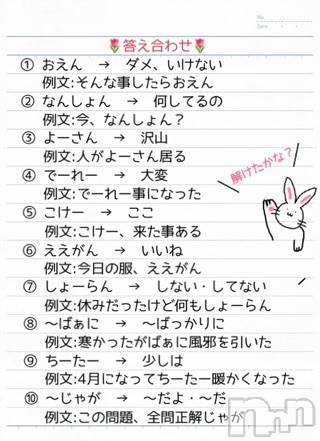 No.
Date
🌷答え合わせ🌷
① おえん → ダメ、いけない
例文:そんな事したらおえん
② なんしょん → 何してるの
例文:今、なんしょん?
③ よーさん → 沢山
例文:人がよーさん居る
④ でーれー → 大変
例文:でーれー事になった
⑤ こけー → ここ
例文:こけー、来た事ある
⑥ ええがん → いいね
例文:今日の服、ええがん
⑦ しょーらん → しない・してない
例文:休みだったけど何もしょーらん
⑧ ～ばぁに → ～ばっかりに
例文:寒かったがばぁに風邪を引いた
⑨ ちーたー → 少しは
例文:4月になってちーたー暖かくなった
⑩ ～じゃが → ～だよ・～だ
例文:この問題、全問正解じゃが
解けたかな?